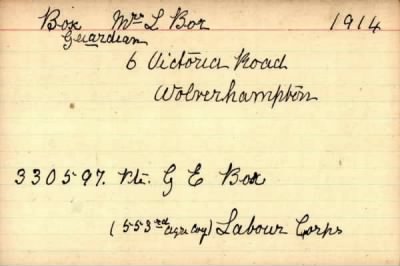 Box Mrs L Box 1914
Guardian
6 Victoria Road
Wolverhampton
330597. Pte. G E Box
(553rd Agri Coy) Labour Corps